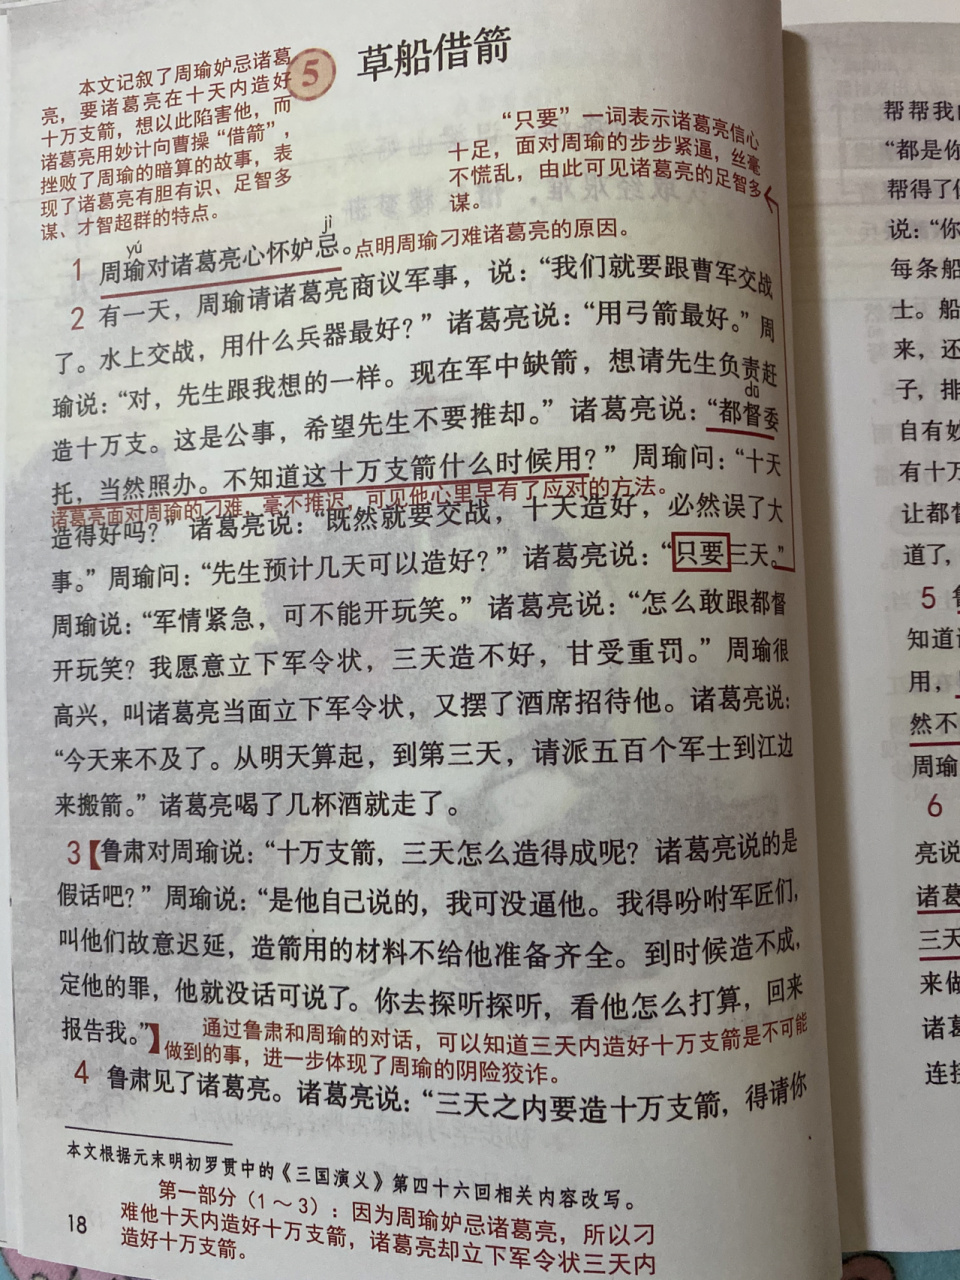 5 草船借箭
本文记叙了周瑜妒忌诸葛
亮，要诸葛亮在十天内造好
十万支箭，想以此陷害他，而
诸葛亮用妙计向曹操“借箭”，
挫败了周瑜的暗算的故事，表
现了诸葛亮有胆有识、足智多
谋、才智超群的特点。
“只要”一词表示诸葛亮信心
十足，面对周瑜的步步紧逼，丝毫
不慌乱，由此可见诸葛亮的足智多
谋。
yú jì
1 周瑜对诸葛亮心怀妒忌。点明周瑜刁难诸葛亮的原因。
2 有一天，周瑜请诸葛亮商议军事，说：“我们就要跟曹军交战
了。水上交战，用什么兵器最好？”诸葛亮说：“用弓箭最好。”周
瑜说：“对，先生跟我想的一样。现在军中缺箭，想请先生负责赶
dū
造十万支。这是公事，希望先生不要推却。”诸葛亮说：“都督委
托，当然照办。不知道这十万支箭什么时候用？”周瑜问：“十天
诸葛亮面对周瑜的刁难，毫不推迟，可见他心里早有了应对的方法。
造得好吗？”诸葛亮说：“既然就要交战，十天造好，必然误了大
事。”周瑜问：“先生预计几天可以造好？”诸葛亮说：“只要三天。”
周瑜说：“军情紧急，可不能开玩笑。”诸葛亮说：“怎么敢跟都督
开玩笑？我愿意立下军令状，三天造不好，甘受重罚。”周瑜很
高兴，叫诸葛亮当面立下军令状，又摆了酒席招待他。诸葛亮说：
“今天来不及了。从明天算起，到第三天，请派五百个军士到江边
来搬箭。”诸葛亮喝了几杯酒就走了。
3【鲁肃对周瑜说：“十万支箭，三天怎么造得成呢？诸葛亮说的是
假话吧？”周瑜说：“是他自己说的，我可没逼他。我得吩咐军匠们，
叫他们故意迟延，造箭用的材料不给他准备齐全。到时候造不成，
定他的罪，他就没话可说了。你去探听探听，看他怎么打算，回来
报告我。”】通过鲁肃和周瑜的对话，可以知道三天内造好十万支箭是不可能
做到的事，进一步体现了周瑜的阴险狡诈。
4 鲁肃见了诸葛亮。诸葛亮说：“三天之内要造十万支箭，得请你
本文根据元末明初罗贯中的《三国演义》第四十六回相关内容改写。
第一部分（1～3）：因为周瑜妒忌诸葛亮，所以刁
难他十天内造好十万支箭，诸葛亮却立下军令状三天内
造好十万支箭。
18
帮帮我
“都是你
帮得了
说：“你
每条船
士。船
来，还
子，排
自有妙
有十万
让都督
道了，
5
知道
用，
然不
周瑜
6
亮说
诸葛
三天
来做
诸葛
连接